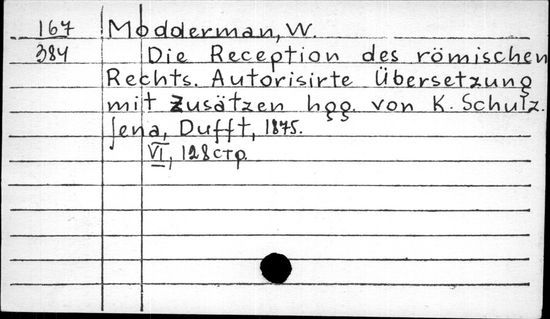 167 Modderman, W.
384 Die Reception des römischen
Rechts. Autorisirte Übersetzung
mit Zusätzen hgg. von K. Schulz.
Jena, Dufft, 1875.
VI, 128 стр.